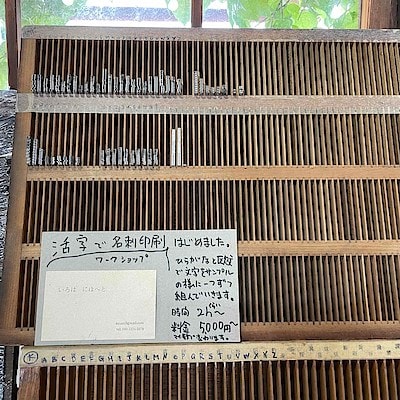 活字で名刺印刷 はじめました。
ワークショップ
ひらがなと欧文
で文字をサンプル
の様に一つずつ
組んでいきます。
時間 2h〜
料金 5,000円〜
いろは にほへと
A B C D E F G H I J K L M N O P Q R S T U V W X Y Z